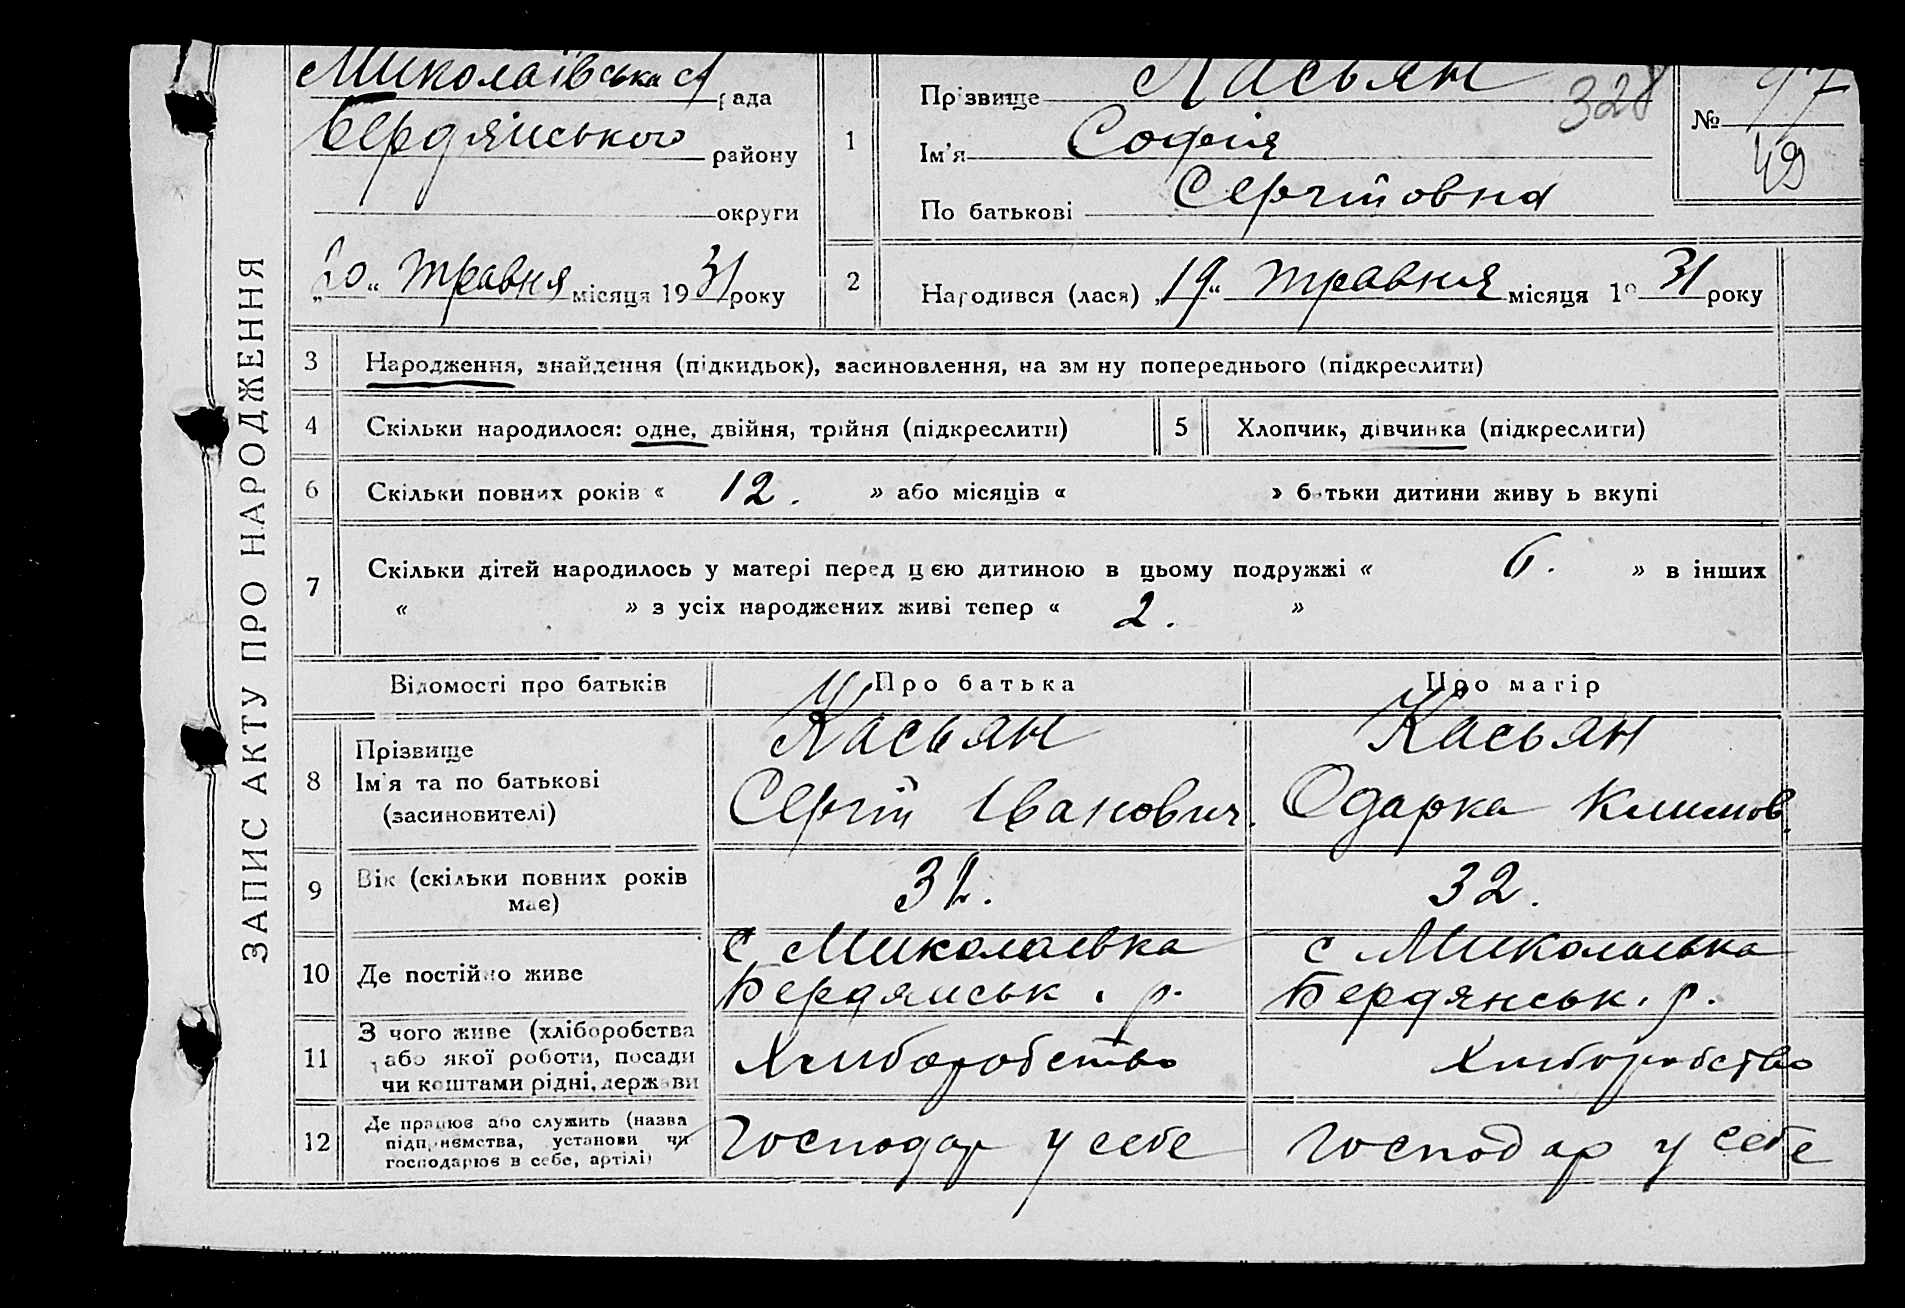 ЗАПИС АКТУ ПРО НАРОДЖЕННЯ
Миколаївська с/рада
Бердянського району
округи
„20“ травня місяця 1931 року
1
Прізвище Касьян
328
Ім'я Софія
По батькові Сергіївна
№ 97
49
2
Народився (лася) „19“ травня місяця 1931 року
3 Народження, знайдення (підкидьок), засиновлення, на зміну попереднього (підкреслити)
4 Скільки народилося: одне, двійня, трійня (підкреслити)
5 Хлопчик, дівчинка (підкреслити)
6 Скільки повних років « 12. » або місяців « » батьки дитини живуть вкупі
7 Скільки дітей народилось у матері перед цією дитиною в цьому подружжі « 6. » в інших
« » з усіх народжених живі тепер « 2. »
Відомості про батьків Про батька Про матір
8 Прізвище
Ім'я та по батькові
(засиновителі)
Касьян
Сергій Іванович.
Касьян
Одарка Климов.
9 Вік (скільки повних років
має)
32.
32.
10 Де постійно живе
с Миколаевка
Бердянськ. р.
с Миколаевка
Бердянськ. р.
11 З чого живе (хліборобства
або якої роботи, посади
чи коштами рідні, держави
Хліборобство
Хліборобство
12 Де працює або служить (назва
підприємства, установи чи
господарює в себе, артілі)
Господар у себе
Господар у себе